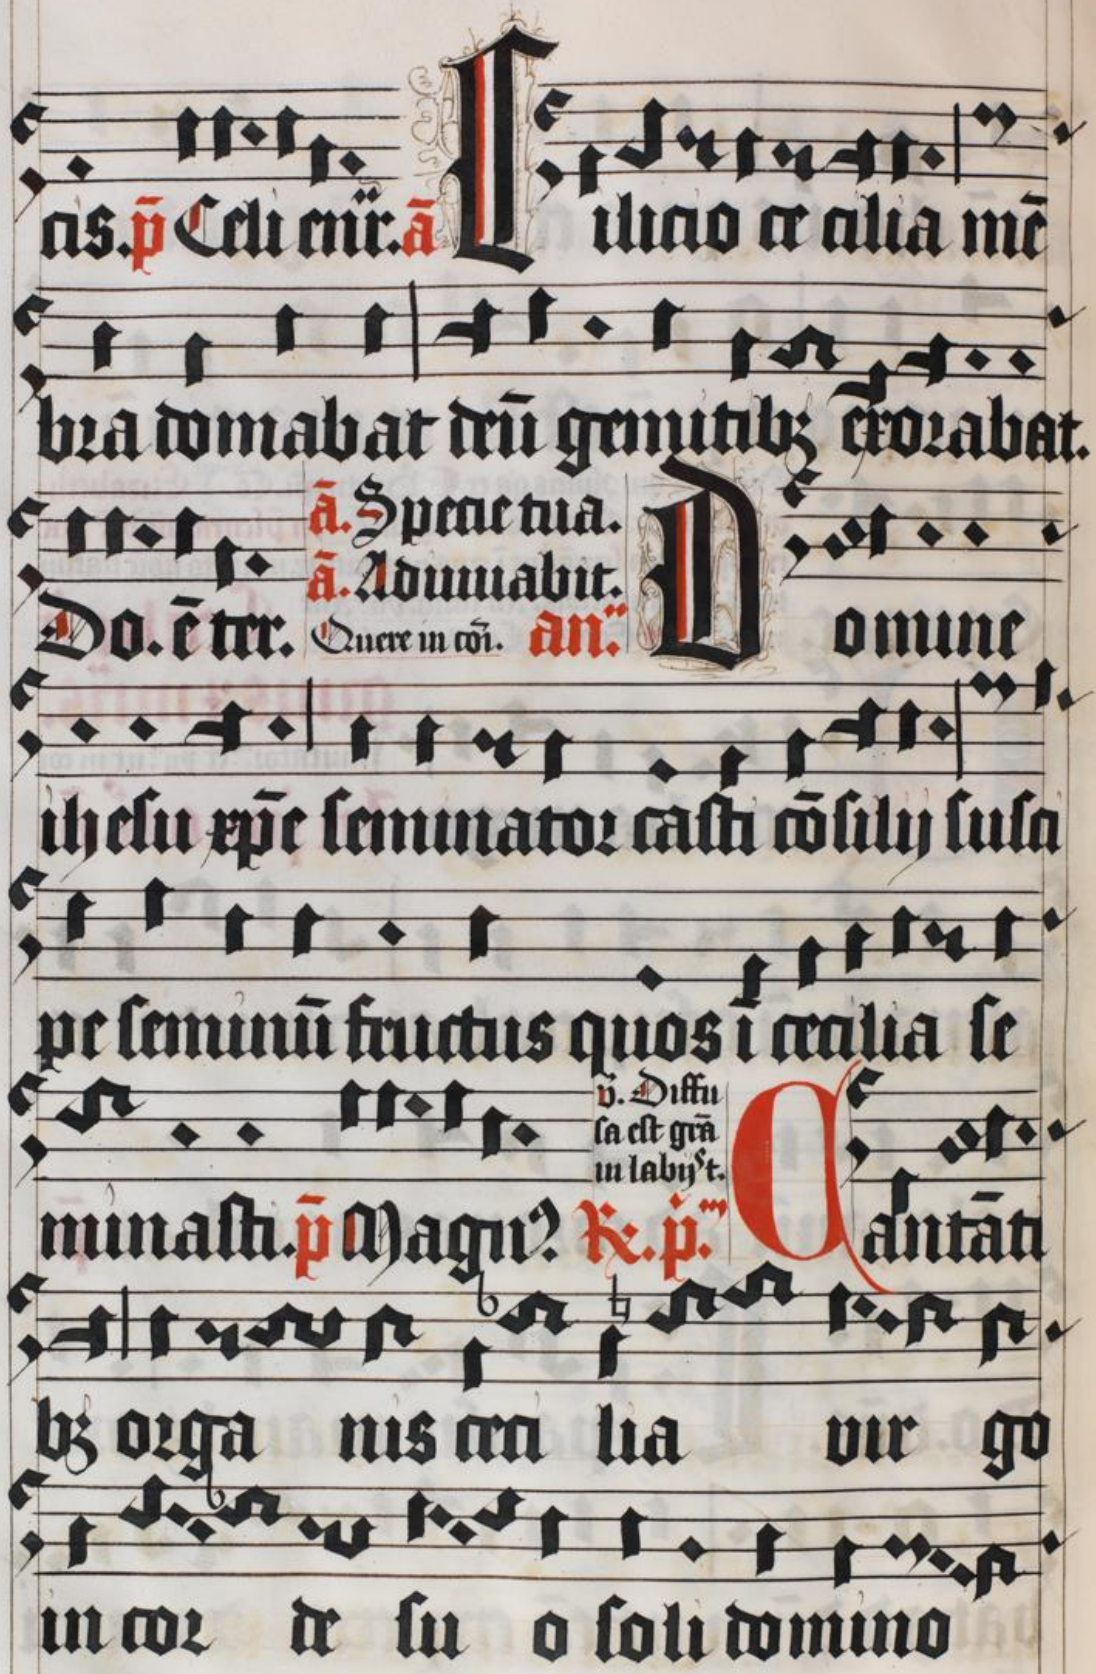 cis. p̄ Celi enãr. ā Cilicio ce cilia mē
bra domabat deū gemitibꝫ exorabat.
ā. Specie tua.
ā. Adiuuabit.
Do. ē ter. Quere in cōi. an̈. Domine
ihesu xp̄e seminator casti cōsilij susci
pe seminū fructus quos ī cecilia se
v̄. Diffu
sa est grā
in labijs t.
minasti. p̄ Magn̉. R. p̄m Cantāti
bꝫ orga nis ceci lia vir go
in cor de su o soli domino